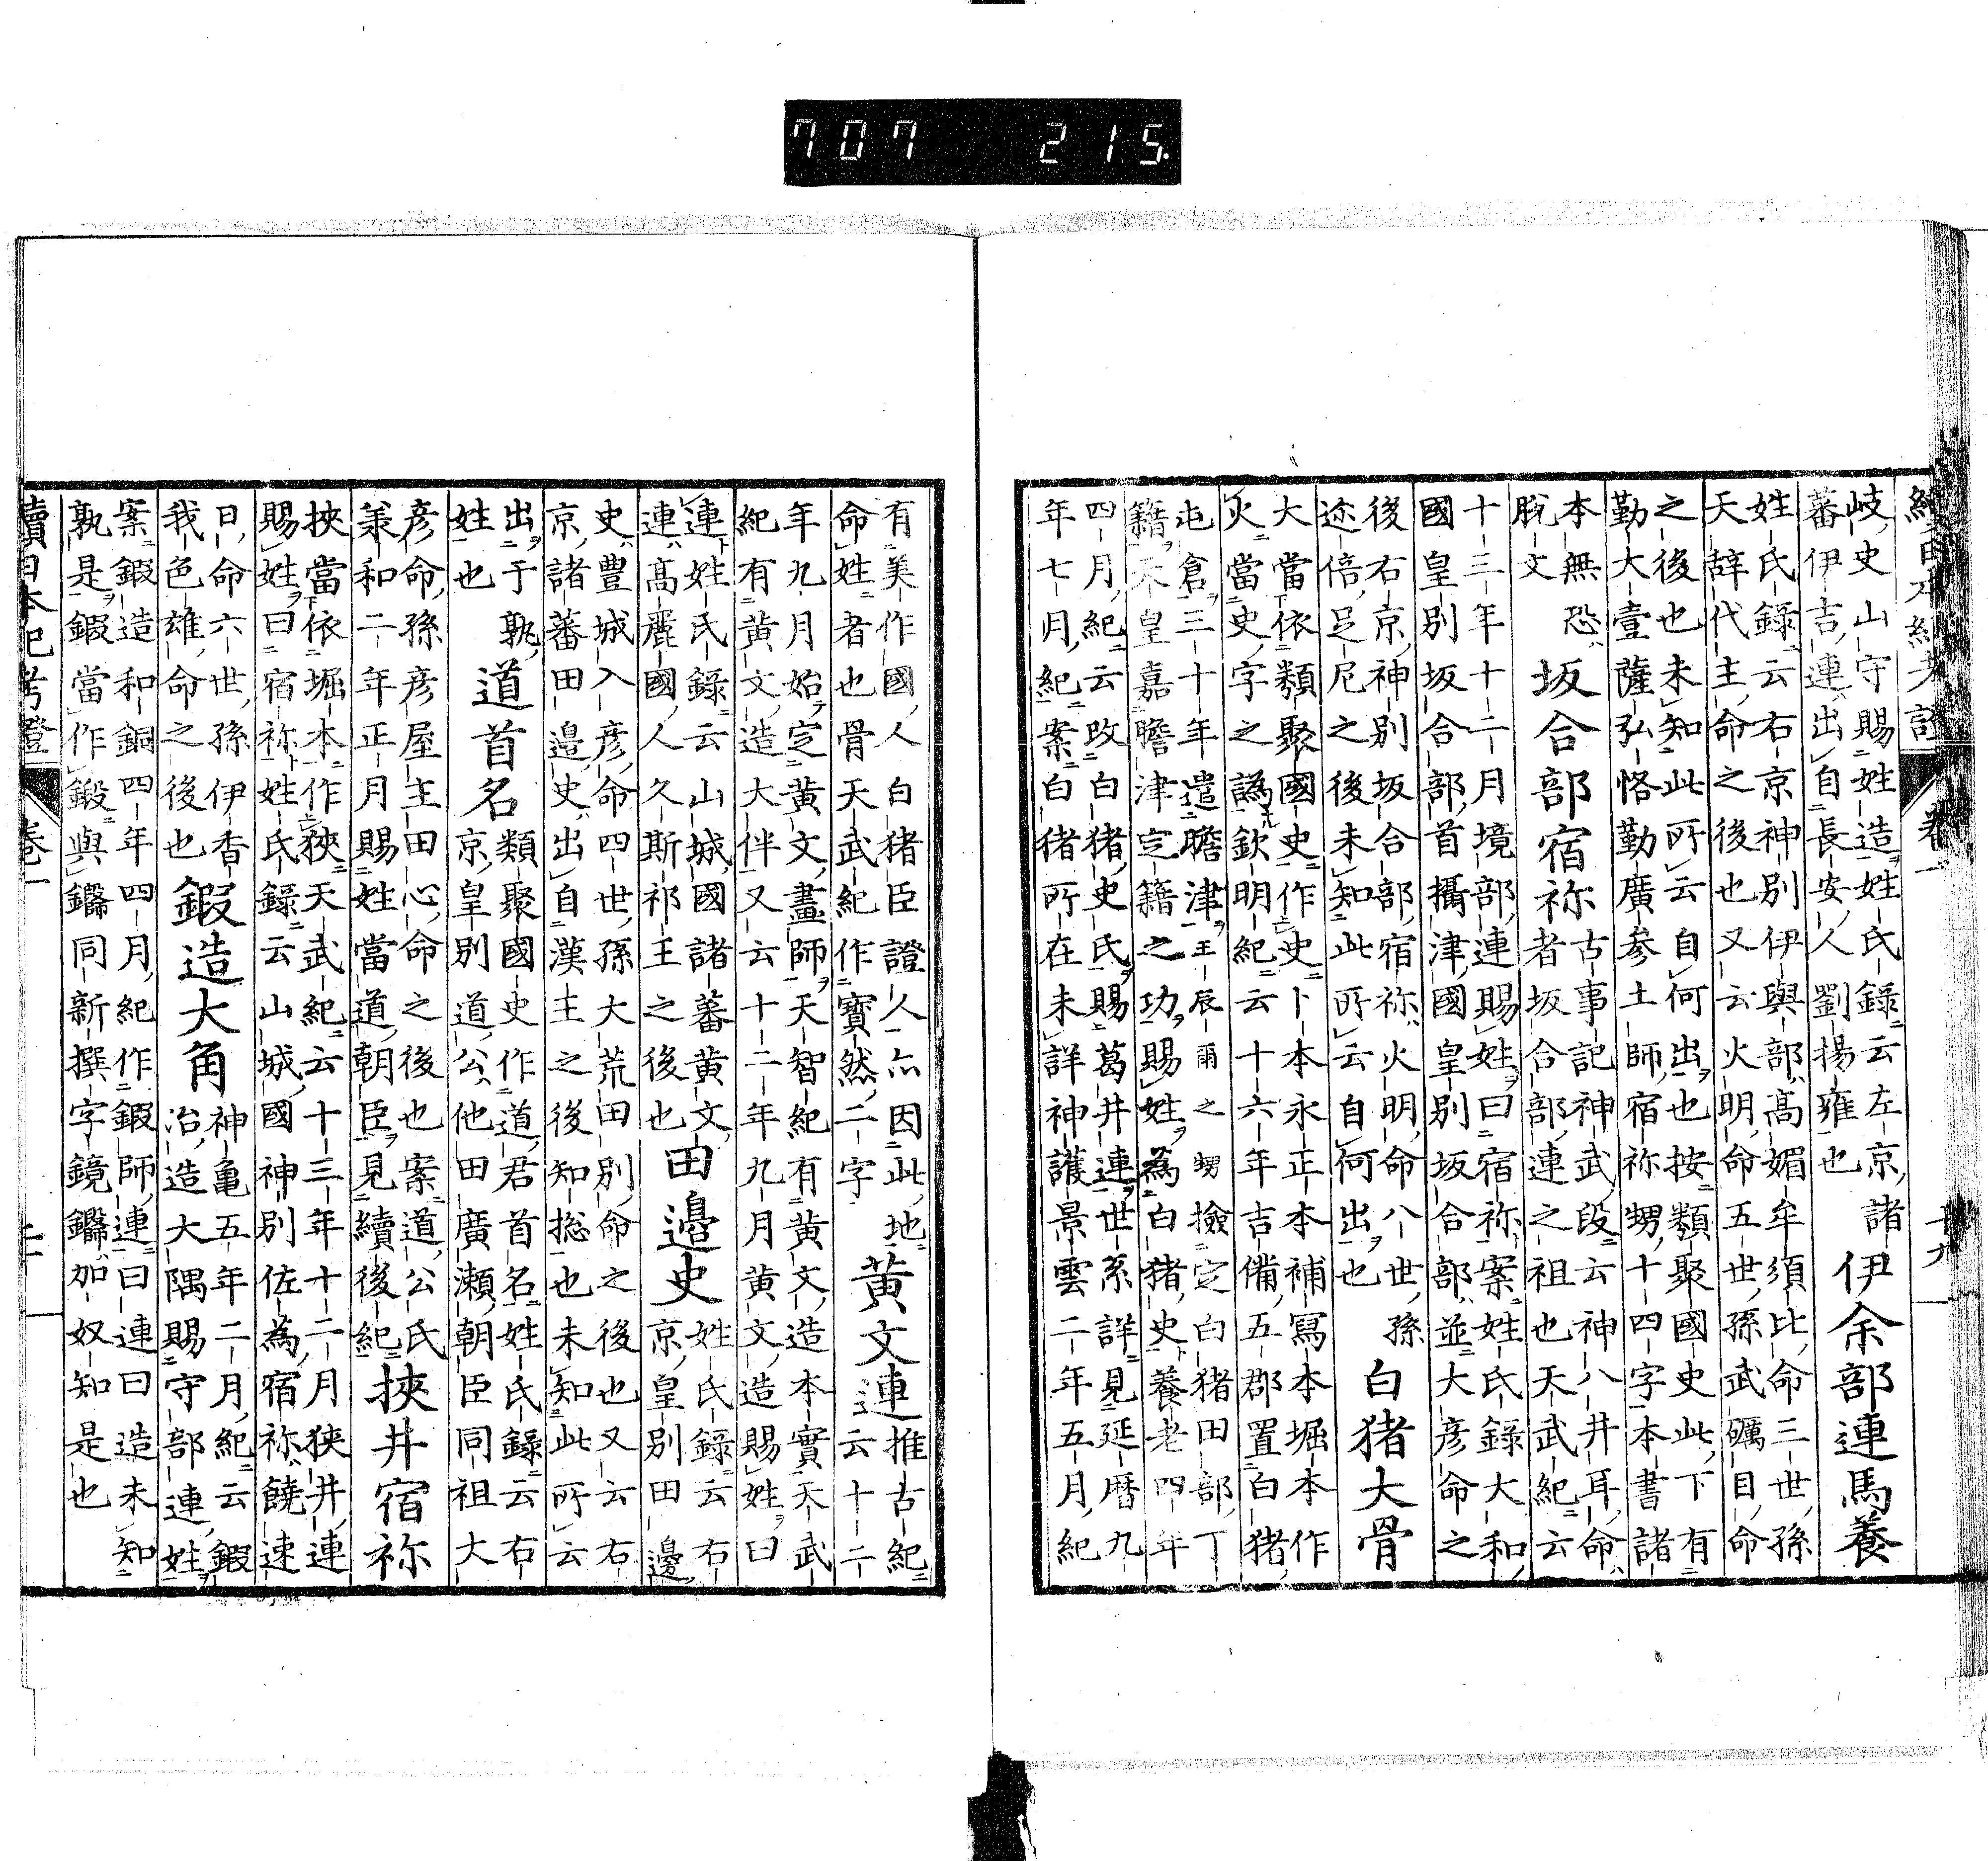 707 215
續日本紀考證 卷一 十九
岐史山守賜姓造姓氏錄云左京諸
蕃伊吉連出自長安人劉揚雍也
伊余部連馬養
姓氏錄云右京神別伊與部高媚牟須比命三世孫
天辞代主命之後也又云火明命五世孫武礪目命
之後也未知此所云自何出也按類聚國史此下有
勤大壹薩弘恪勤廣參土師宿祢甥十四字本書諸
本無恐
脫文
坂合部宿祢
古事記神武段云神八井耳命
者坂合部連之祖也天武紀云
十三年十二月境部連賜姓曰宿祢案姓氏錄大和
國皇別坂合部首攝津國皇別坂合部並大彥命之
後右京神別坂合部宿祢火明命八世孫
迩倍足尼之後未知此所云自何出也
白猪大骨
大當依類聚國史作史卜本永正本補寫本堀本作
火當史字之譌欽明紀云十六年吉備五郡置白猪
屯倉三十年遣膽津王辰爾之甥撿定白猪田部丁
籍天皇嘉膽津定籍之功賜姓為白猪史養老四年
四月紀云改白猪史氏賜葛井連世系詳見延曆九
年七月紀案白猪所在未詳神護景雲二年五月紀
有美作國人白猪臣證人亦因此地
命姓者也骨天武紀作寶然二字
黃文連
推古紀
云十二
年九月始定黃文畫師天智紀有黃文造本實天武
紀有黃文造大伴又云十二年九月黃文造賜姓曰
連姓氏錄云山城國諸蕃黃文
連高麗國人久斯祁王之後也
田邊史
姓氏錄云右
京皇別田邊
史豊城入彥命四世孫大荒田別命之後也又云右
京諸蕃田邊史出自漢王之後知揔也未知此所云
出于
姓也
孰
道首名
類聚國史作道君首名姓氏錄云右
京皇別道公他田廣瀬朝臣同祖大
彥命孫彥屋主田心命之後也案道公氏
兼和二年正月賜姓當道朝臣見續後紀
挾井宿祢
挾當依堀本作狹天武紀云十三年十二月狹井連
賜姓曰宿祢姓氏錄云山城國神別佐為宿祢饒速
日命六世孫伊香
我色雄命之後也
鍜造大角
神亀五年二月紀云鍜
冶造大隅賜守部連姓
案鍜造和銅四年四月紀作鍜師連曰連曰造未知
孰是鍜當作鍛與鑼同新撰字鏡鑼加奴知是也
續日本紀考證 卷一 二十